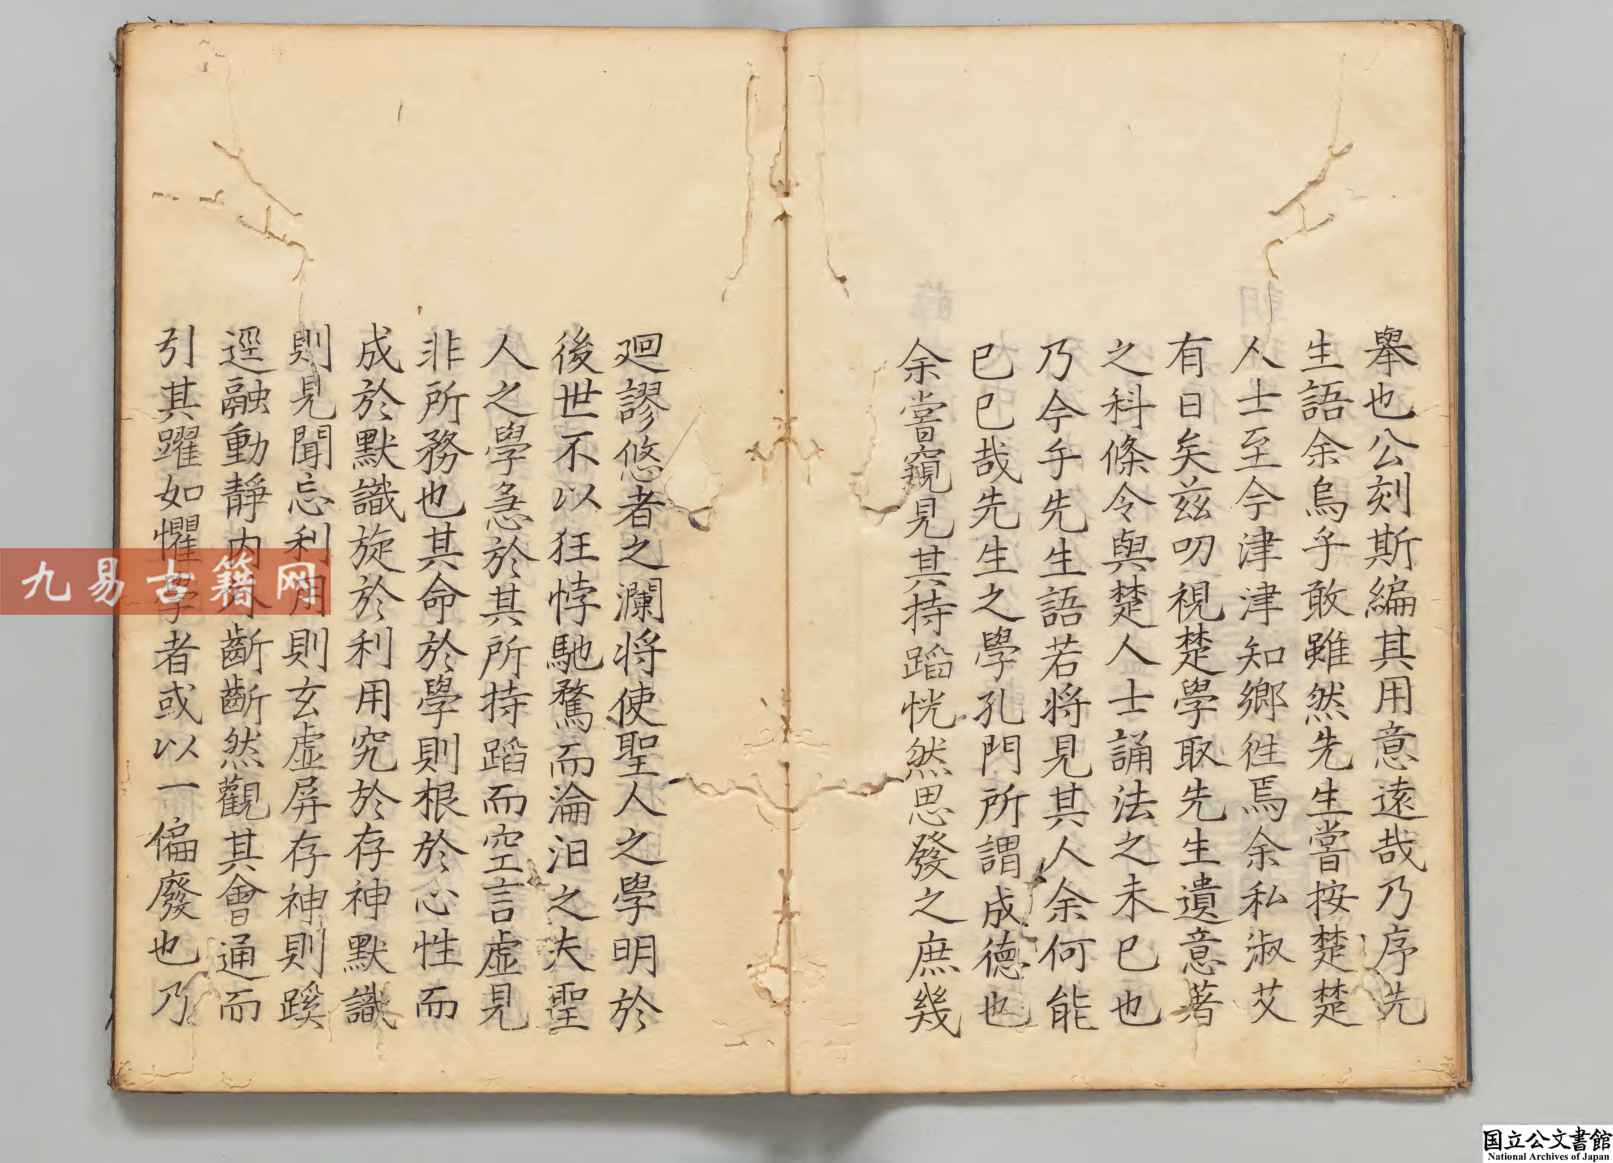 舉也公刻斯編其用意遠哉乃序先
生語余烏乎敢雖然先生嘗按楚楚
人士至今津津知鄉徃焉余私淑艾
有日矣兹叨視楚學取先生遺意著
之科條令與楚人士誦法之未已也
乃今乎先生語若將見其人余何能
已已哉先生之學孔門所謂成德也
余嘗窺見其持蹈恍然思發之庶幾
廻謬悠者之瀾將使聖人之學明於
後世不以狂悖馳騖而淪汩之夫聖
人之學急於其所持蹈而空言虛見
非所務也其命於學則根於心性而
成於默識旋於利用究於存神默識
則見聞忘利用則玄虛屏存神則蹊
逕融動靜內斷斷然觀其會通而
引其躍如懼學者或以一偏廢也乃
九易古籍网
国立公文書館
National Archives of Japan